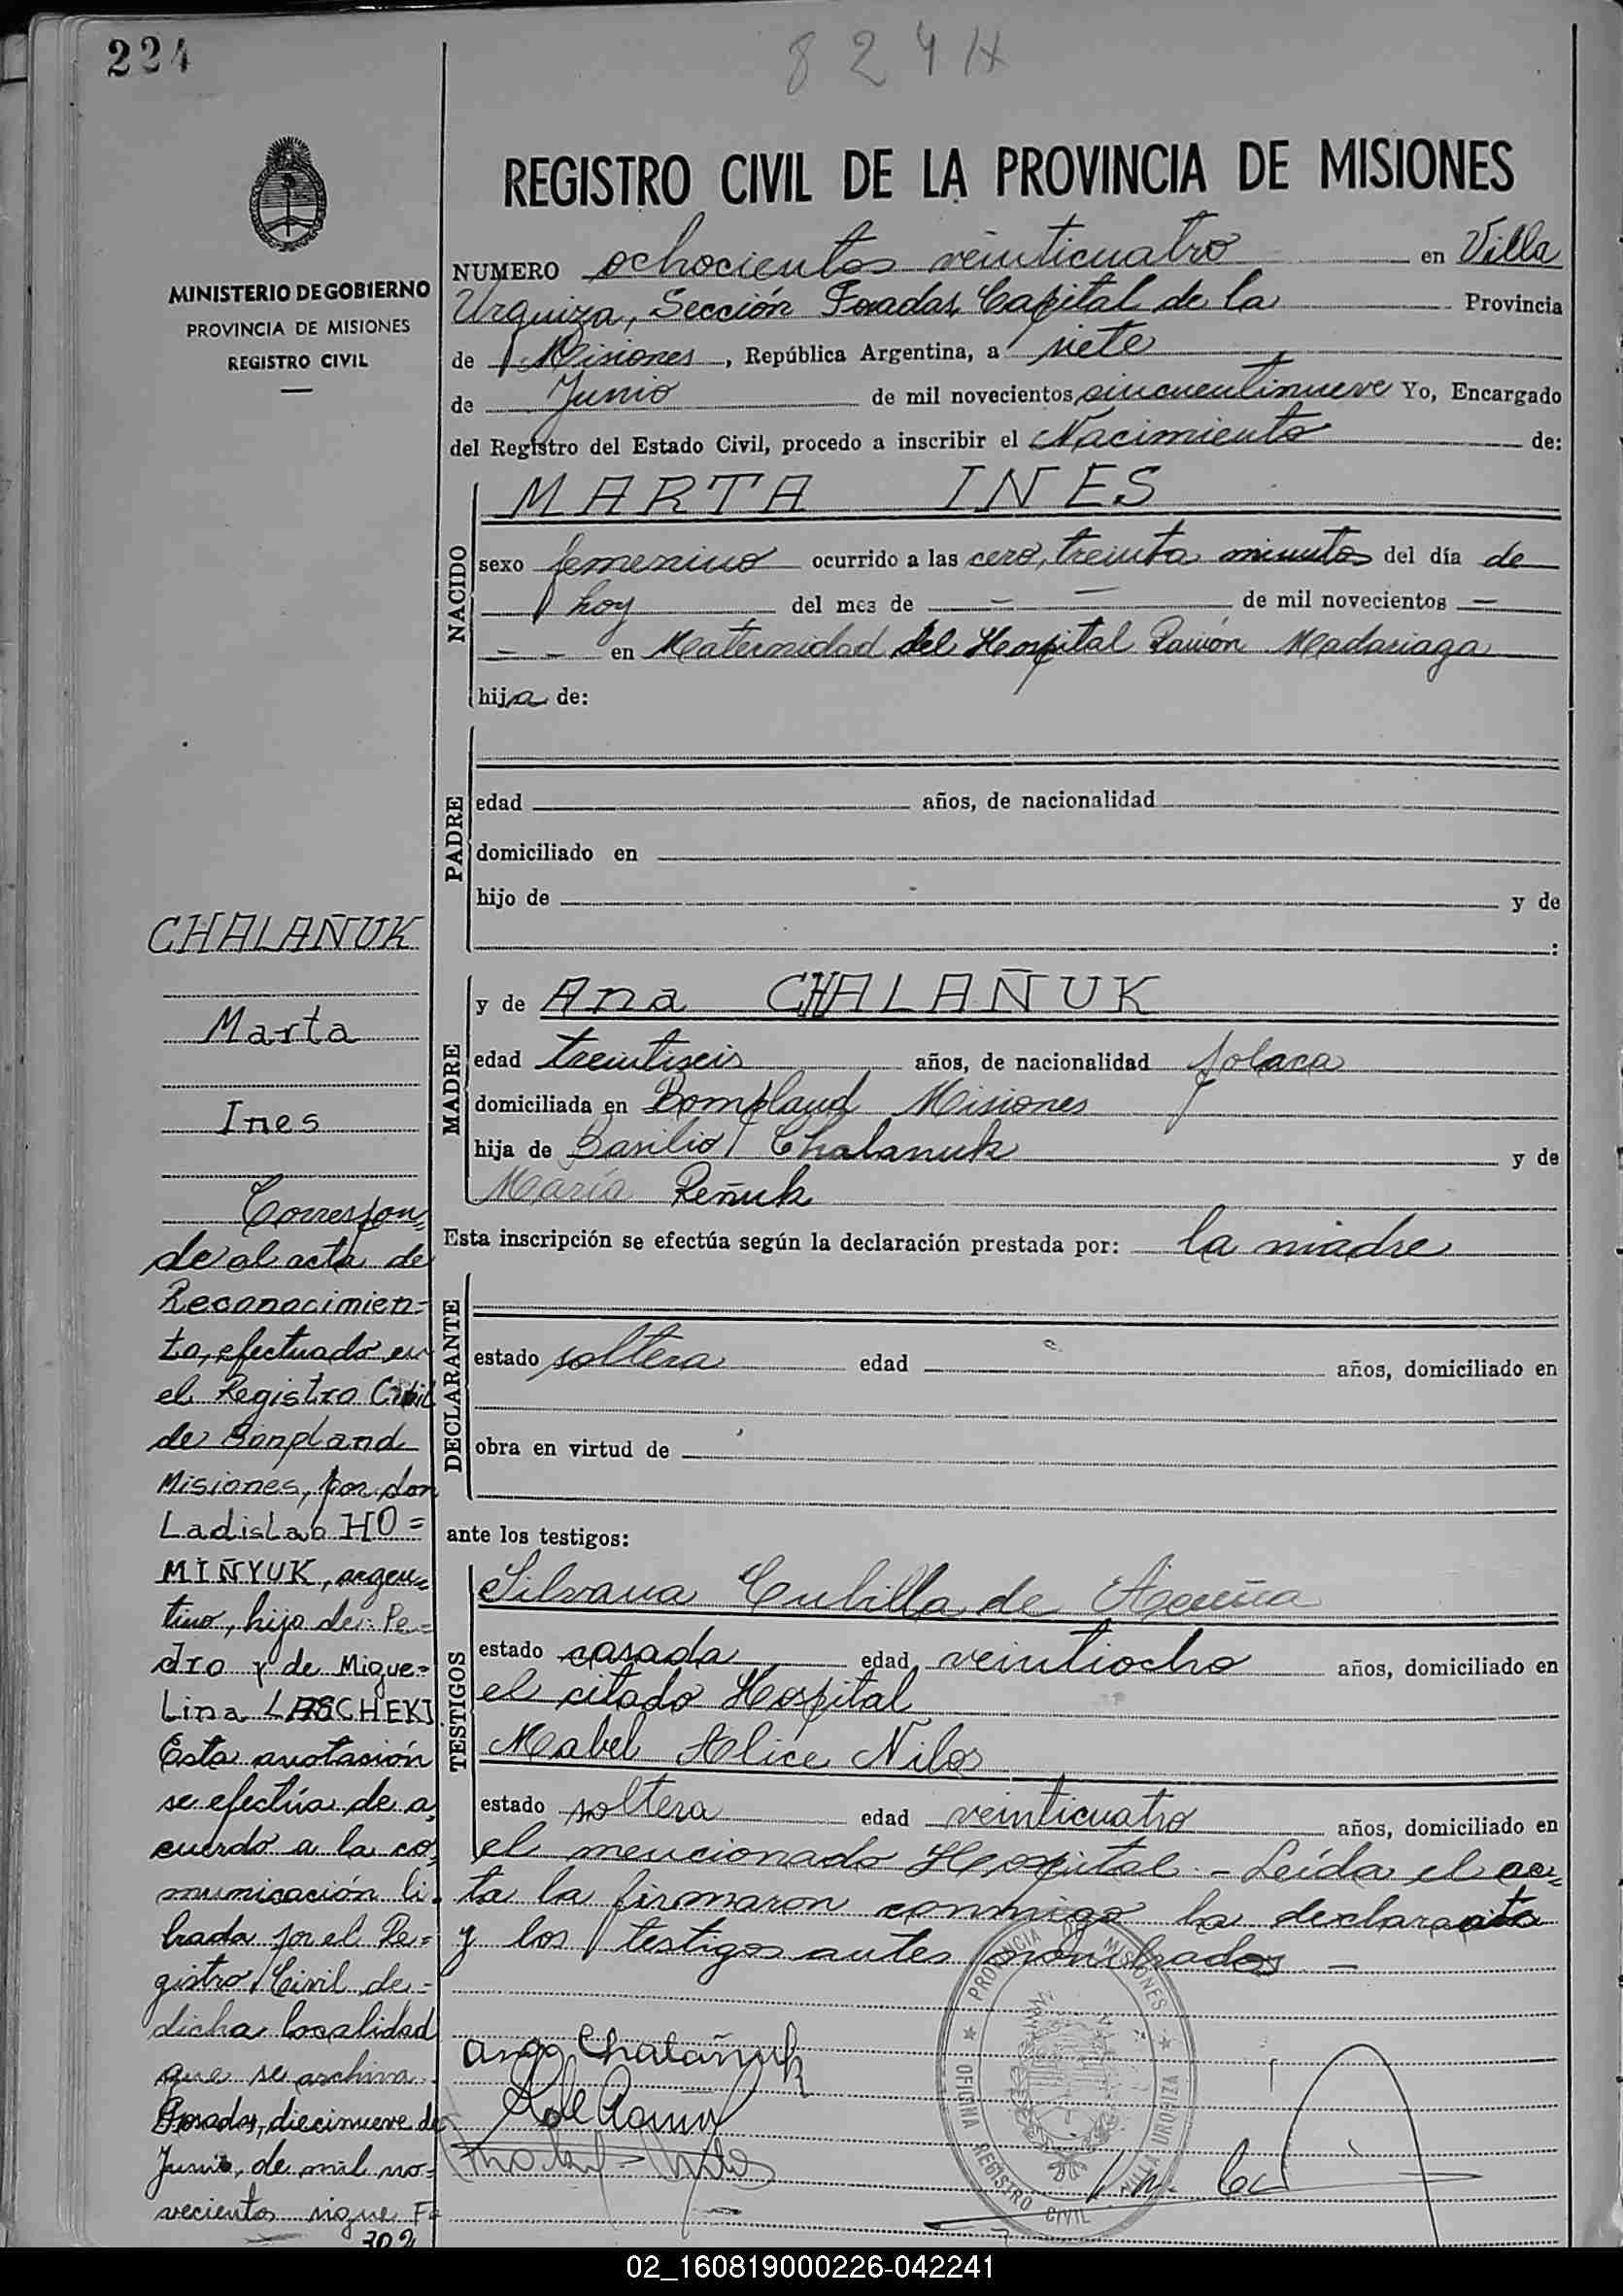 224
824 H
REGISTRO CIVIL DE LA PROVINCIA DE MISIONES
MINISTERIO DE GOBIERNO
PROVINCIA DE MISIONES
REGISTRO CIVIL
NUMERO ochocientos veinticuatro en Villa
Urquiza, Sección Posadas, Capital de la Provincia
de Misiones, República Argentina, a siete
de Junio de mil novecientos cincuentinueve Yo, Encargado
del Registro del Estado Civil, procedo a inscribir el Nacimiento de:
NACIDO
MARTA INES
sexo femenino ocurrido a las cero, treinta minutos del día de
hoy del mes de — — de mil novecientos —
— — en Maternidad del Hospital Ramón Madariaga
hija de:
PADRE
edad años, de nacionalidad
domiciliado en
hijo de y de
:
MADRE
y de Ana CHALAÑUK
edad treintiseis años, de nacionalidad polaca
domiciliada en Bompland Misiones
hija de Basilio Chalanuk y de
María Reñuk
Esta inscripción se efectúa según la declaración prestada por: la madre
DECLARANTE
estado soltera edad años, domiciliado en
obra en virtud de
ante los testigos:
TESTIGOS
Silvana Cubilla de Acuña
estado casada edad veintiocho años, domiciliado en
el citado Hospital
Mabel Alice Nilos
estado soltera edad veinticuatro años, domiciliado en
el mencionado Hospital - Leída el ac=
ta la firmaron conmigo la declarante
y los testigos antes nombrados —
Ana Chalañuk
PROVINCIA DE MISIONES
OFICINA REGISTRO CIVIL VILLA URQUIZA
CHALAÑUK
Marta
Ines
Correspon=
de al acta de
Reconocimien=
to, efectuado en
el Registro Civil
de Bonpland
Misiones, por don
Ladislao HO=
MIÑYUK, argen=
tino, hijo de: Pe=
dro y de Migue=
Lina LASCHEKI
Esta anotación
se efectúa de a,
cuerdo a la co,
municación li=
brada por el Re=
gistro Civil de=
dicha localidad
que se archiva.
Posadas, diecinueve de
Junio, de mil no=
vecientos sigue Fº
302
02_160819000226-042241